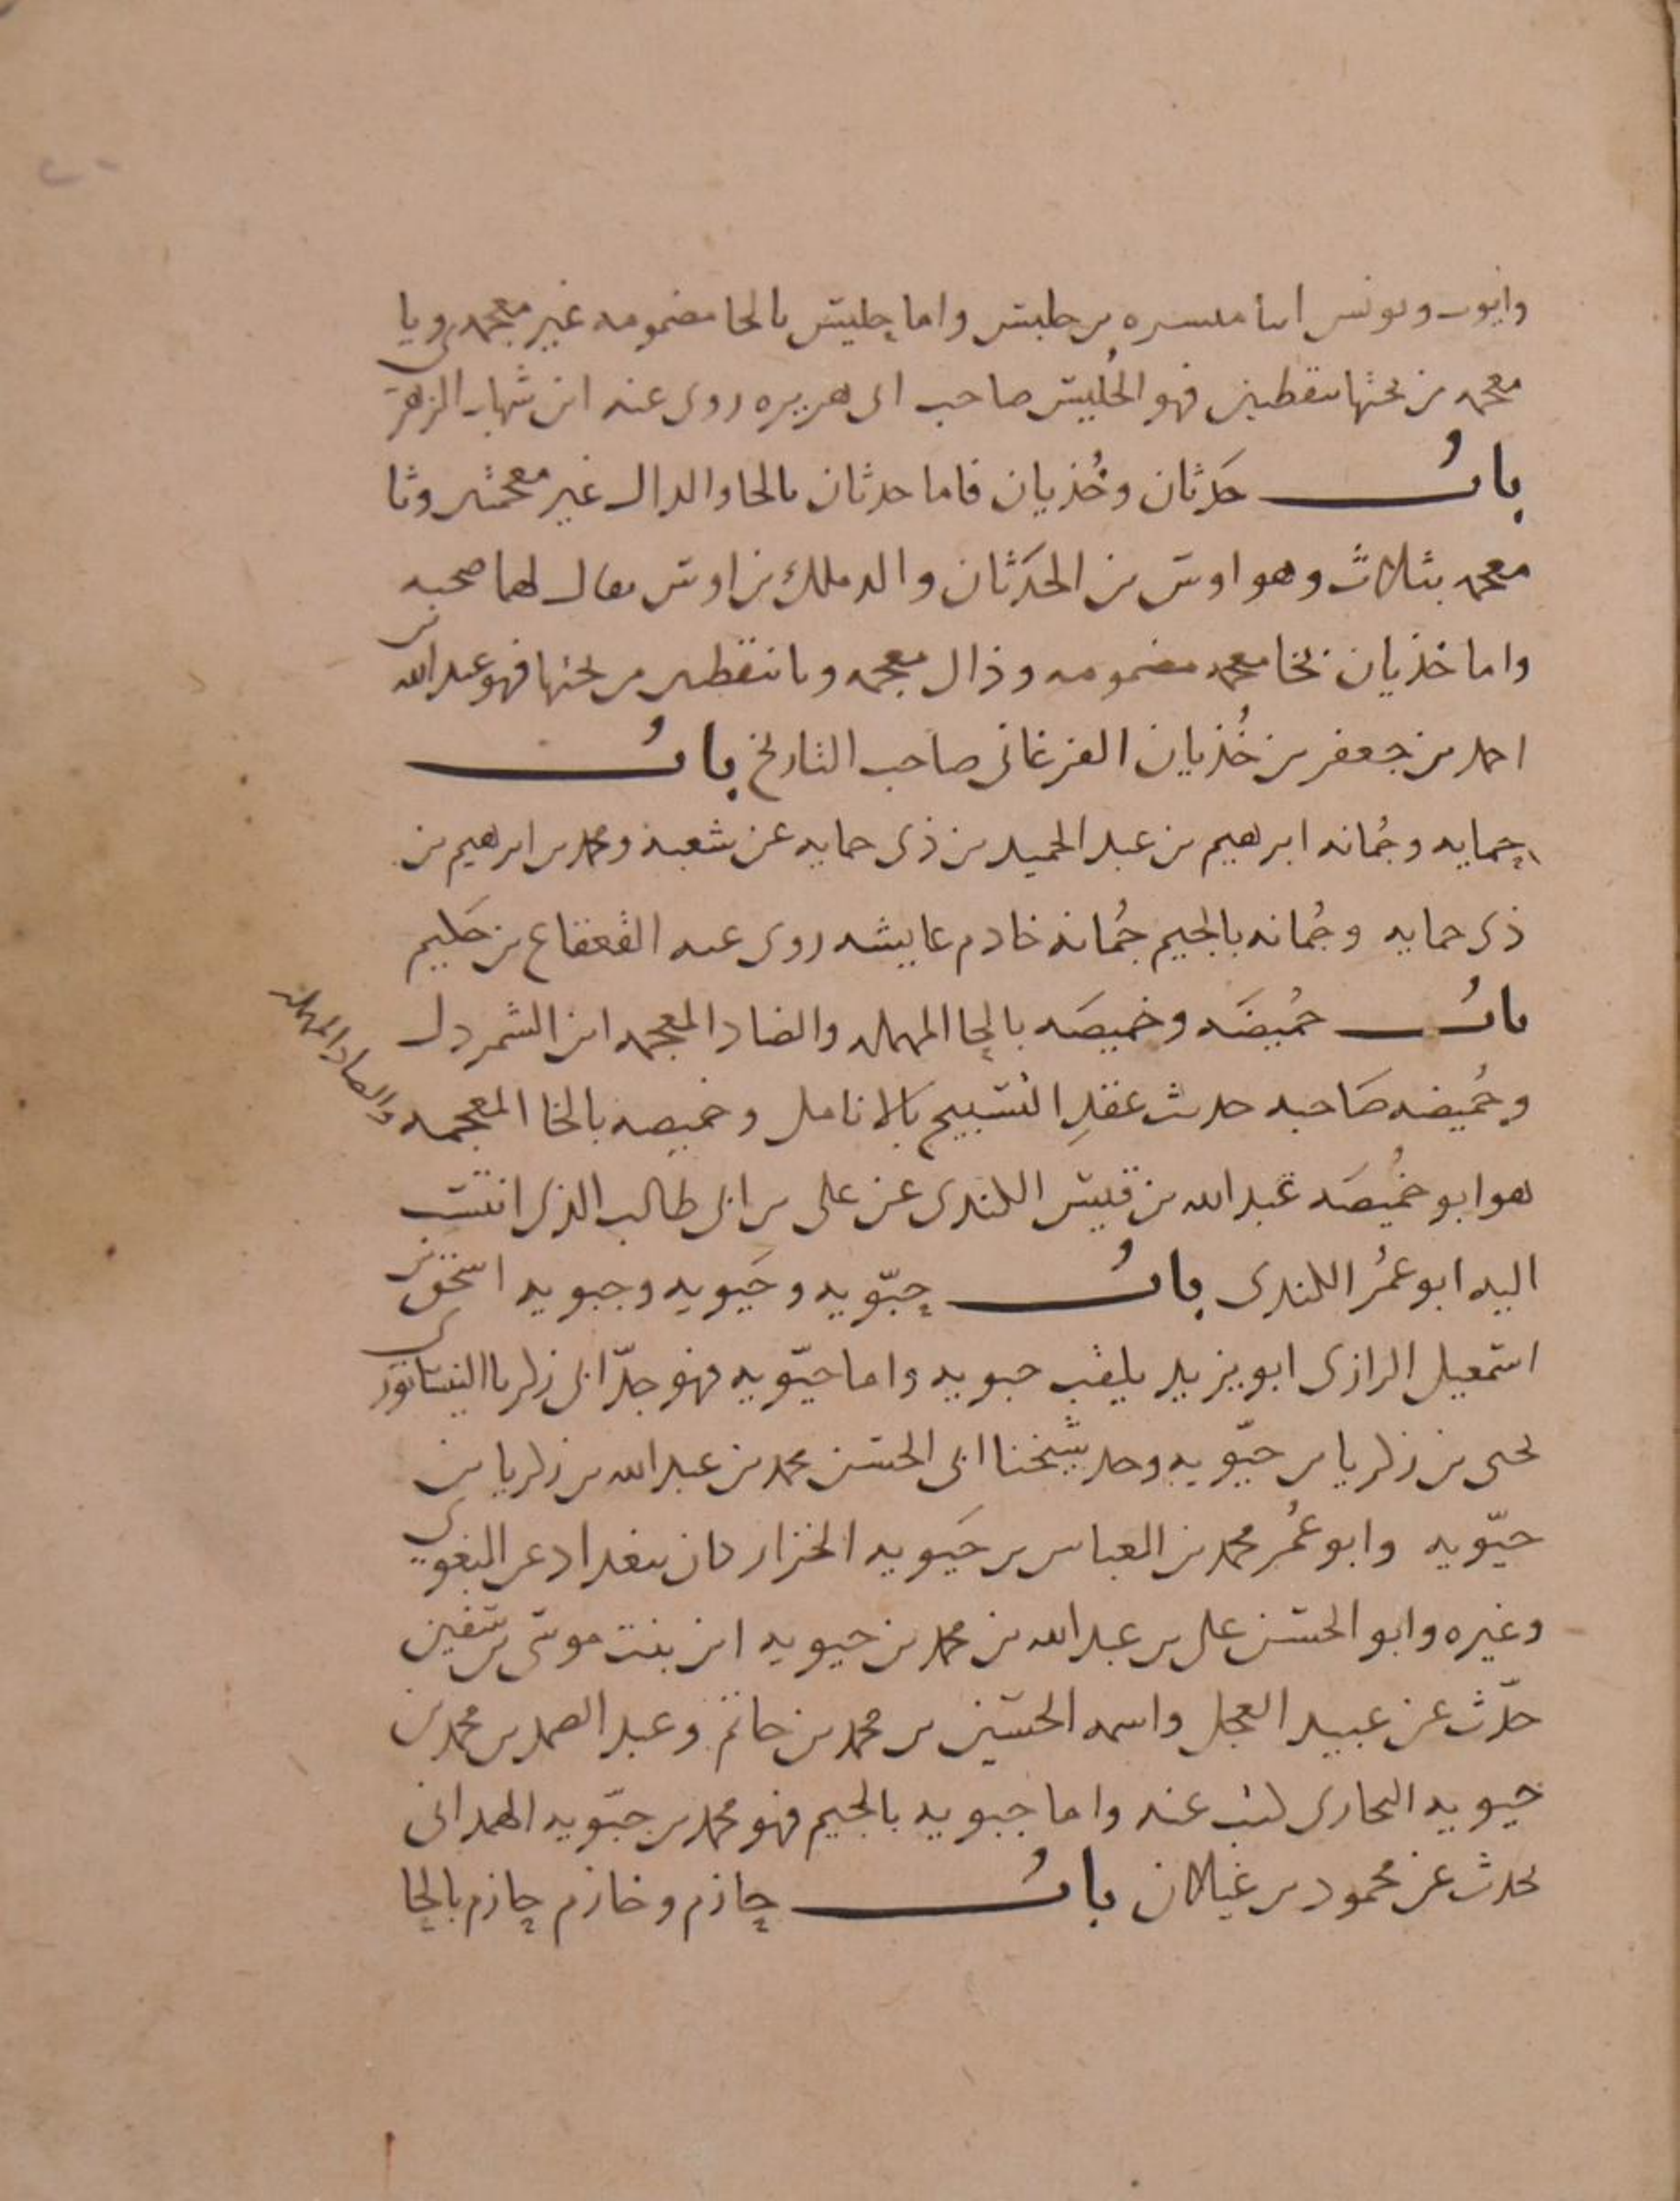 وايوب ويونس ابنا ميسره بن حلبس واما حليس بالحا مضمومه غير معجمه ويا
معجمه من تحتها بنقطتين فهو الحُليس صاحب ابي هريره روى عنه ابن شهاب الزهري
بابُ حَدَثان وخُذيان فاما حدثان بالحا والدال غير معجمتين وثا
معجمه بثلاث وهو اوس بن الحَدَثان والد ملك بن اوس يقال لهما صحبه
واما خذيان بخا معجمه مضمومه وذال معجمه ويا بنقطتين من تحتها فهو عبد الله بن
احمد بن جعفر بن خُذيان الفرغاني صاحب التاريخ بابُ
حمايه وجُمانه ابرهيم بن عبد الحميد بن ذى حمايه عن شعبه ومحمد بن ابرهيم بن
ذى حمايه وجُمانه بالجيم جُمانه خادم عايشه روى عنه القعقاع بن حَكيم
بابُ حُميضَه وخميصَه بالحا المهمله والضاد المعجمه ابن الشمردل
وحُميضه صَاحبه حديث عَقدِ التسبيح بالانامل وخميصه بالخا المعجمه والصاد المهمله
هو ابو خُميصَه عبد الله بن قيس الكندى عن على بن ابى طالب الذى انتسب
اليه ابو عمُر الكندى بابُ حبّويه وحَيويه وجبويه اسحق بن
اسمعيل الرازى ابو يزيد يلقب حبويه واما حيّويه فهو جدّ ابى زكريا النيسابورى
يحيى بن زكريا بن حيّويه وجد شيخنا ابى الحسن محمد بن عبد الله بن زكريا بن
حيّويه وابو عمُر محمد بن العباس بن حَيويه الخزاز كان ببغداد عن البغوى
وغيره وابو الحسن على بن عبد الله بن محمد بن حيويه ابن بنت موسى بن سفين
حدّث عن عبيد العجل واسمه الحسين بن محمد بن حاتم وعبد الصمد بن محمد بن
حيويه البخارى كتب عنه واما جبويه بالجيم فهو محمد بن جبّويه الهمدانى
يحدث عن محمود بن غيلان بابُ حازم وخازم حازم بالحا